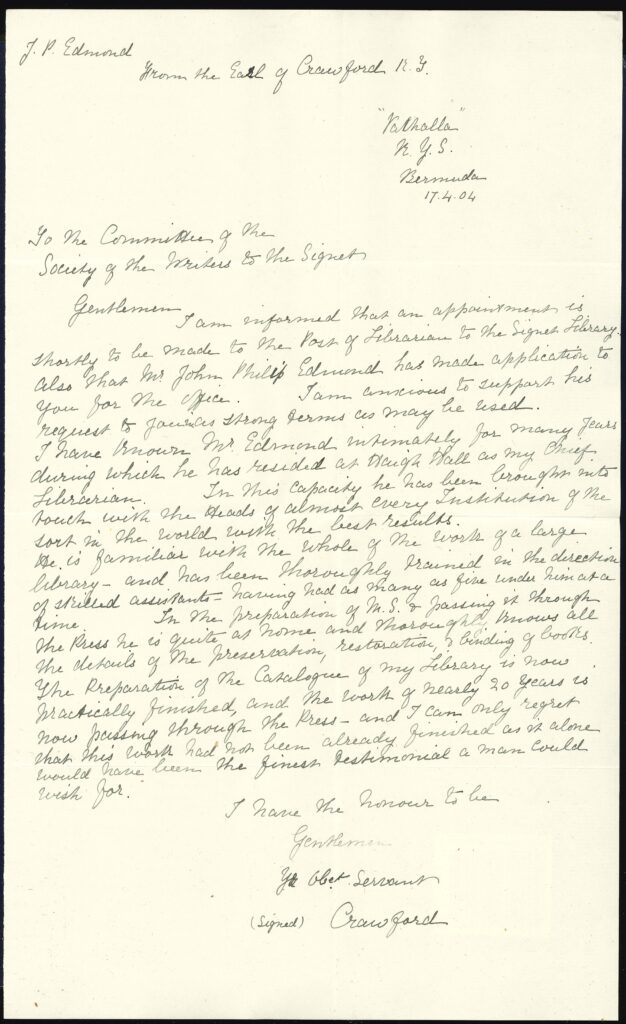 J. P. Edmond
From the Earl of Crawford K.T.
"Valhalla"
R. Y. S.
Bermuda
17.4.04
To the Committee of the
Society of the Writers to the Signet
Gentlemen
I am informed that an appointment is
shortly to be made to the Post of Librarian to the Signet Library.
also that Mr John Philip Edmond has made application to
You for the office. I am anxious to support his
request to you in as strong terms as may be used.
I have known Mr Edmond intimately for many Years
during which he has resided at Haigh Hall as my Chief
Librarian. In this capacity he has been brought into
touch with the Heads of almost every Institution of the
sort in the world with the best results.
He is familiar with the whole of the work of a large
library – and has been thoroughly trained in the direction
of skilled assistants – having had as many as five under him at a
time. In the preparation of M.S. & passing it through
the Press he is quite at home, and thoroughly knows all
the details of the preservation, restoration, & binding of books.
The Preparation of the Catalogue of my Library is now
practically finished, and the work of nearly 20 Years is
now passing through the Press – and I can only regret
that this work had not been already finished as it alone
would have been the finest testimonial a man could
wish for.
I have the honour to be
Gentlemen
Yr Obet Servant
(Signed) Crawford